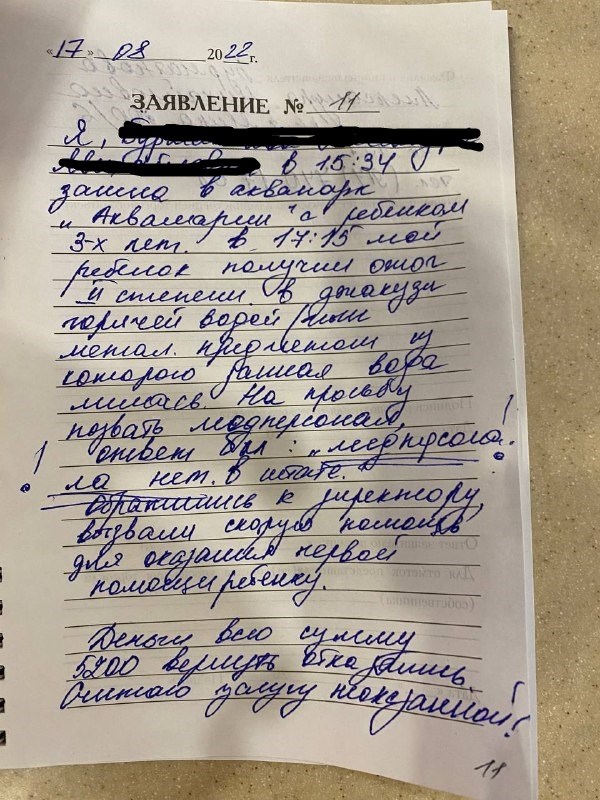 «17» 08 2022 г.
ЗАЯВЛЕНИЕ № 11
Я,
в 15:34
зашла в аквапарк
"Аквамарин" с ребенком
3-х лет. В 17:15 мой
ребенок получил ожог
II степени в джакузи
горячей водой/или
метал. предметом из
которого данная вода
лилась. На просьбу
позвать медперсонал,
ответ был: „медперсона-!
! ла нет в штате.
Обратились к директору,
вызвали скорую помощь
для оказания первой
помощи ребенку.
Деньги всю сумму
5200 вернуть отказались.
Считаю услугу неоказанной!
11